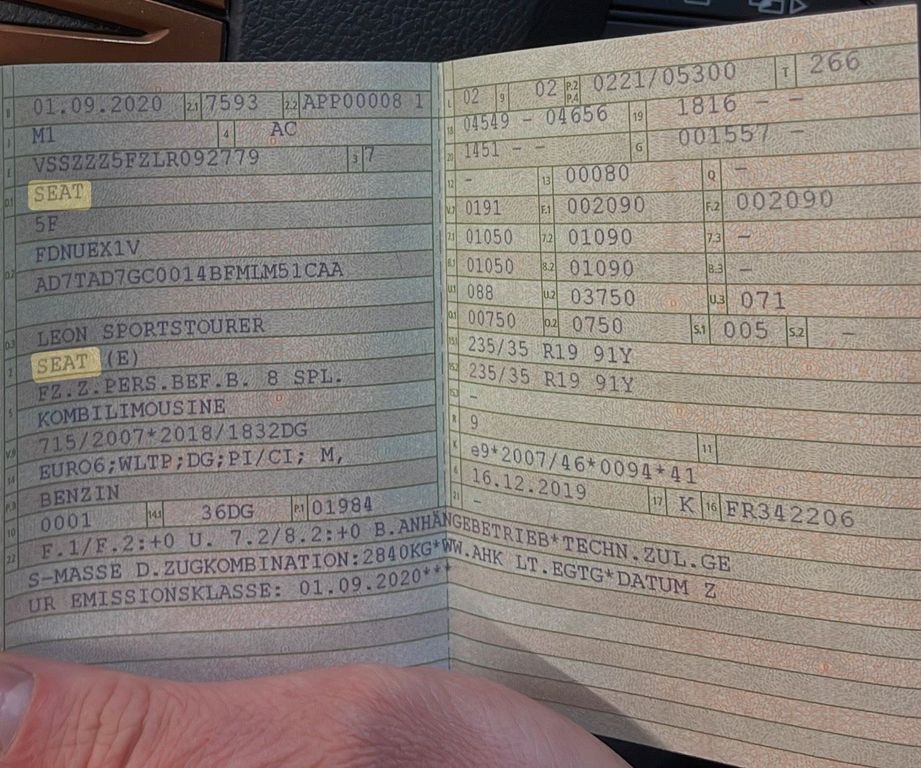 B 01.09.2020 2.1 7593 2.2 APP00008 1
J M1 4 AC
E VSSZZZ5FZLR092779 3 7
D.1 SEAT
5F
D.2 FDNUEX1V
AD7TAD7GC0014BFMLM51CAA
D.3 LEON SPORTSTOURER
2 SEAT (E)
FZ.Z.PERS.BEF.B. 8 SPL.
5 KOMBILIMOUSINE
V.9 715/2007*2018/1832DG
14 EURO6;WLTP;DG;PI/CI; M,
P.3 BENZIN
10 0001 14.1 36DG P.1 01984
L 02 9 02 P.2 P.4 0221/05300 T 266
18 04549 - 04656 19 1816 - -
20 1451 - - G 001557 -
12 - 13 00080 Q -
V.7 0191 F.1 002090 F.2 002090
7.1 01050 7.2 01090 7.3 -
8.1 01050 8.2 01090 8.3 -
U.1 088 U.2 03750 U.3 071
O.1 00750 O.2 0750 S.1 005 S.2 -
15.1 235/35 R19 91Y
15.2 235/35 R19 91Y
15.3 -
R 9 11
K e9*2007/46*0094*41
6 16.12.2019 17 K 16 FR342206
21 -
22 F.1/F.2:+0 U. 7.2/8.2:+0 B.ANHÄNGEBETRIEB*TECHN.ZUL.GE
S-MASSE D.ZUGKOMBINATION:2840KG*WW.AHK LT.EGTG*DATUM Z
UR EMISSIONSKLASSE: 01.09.2020***